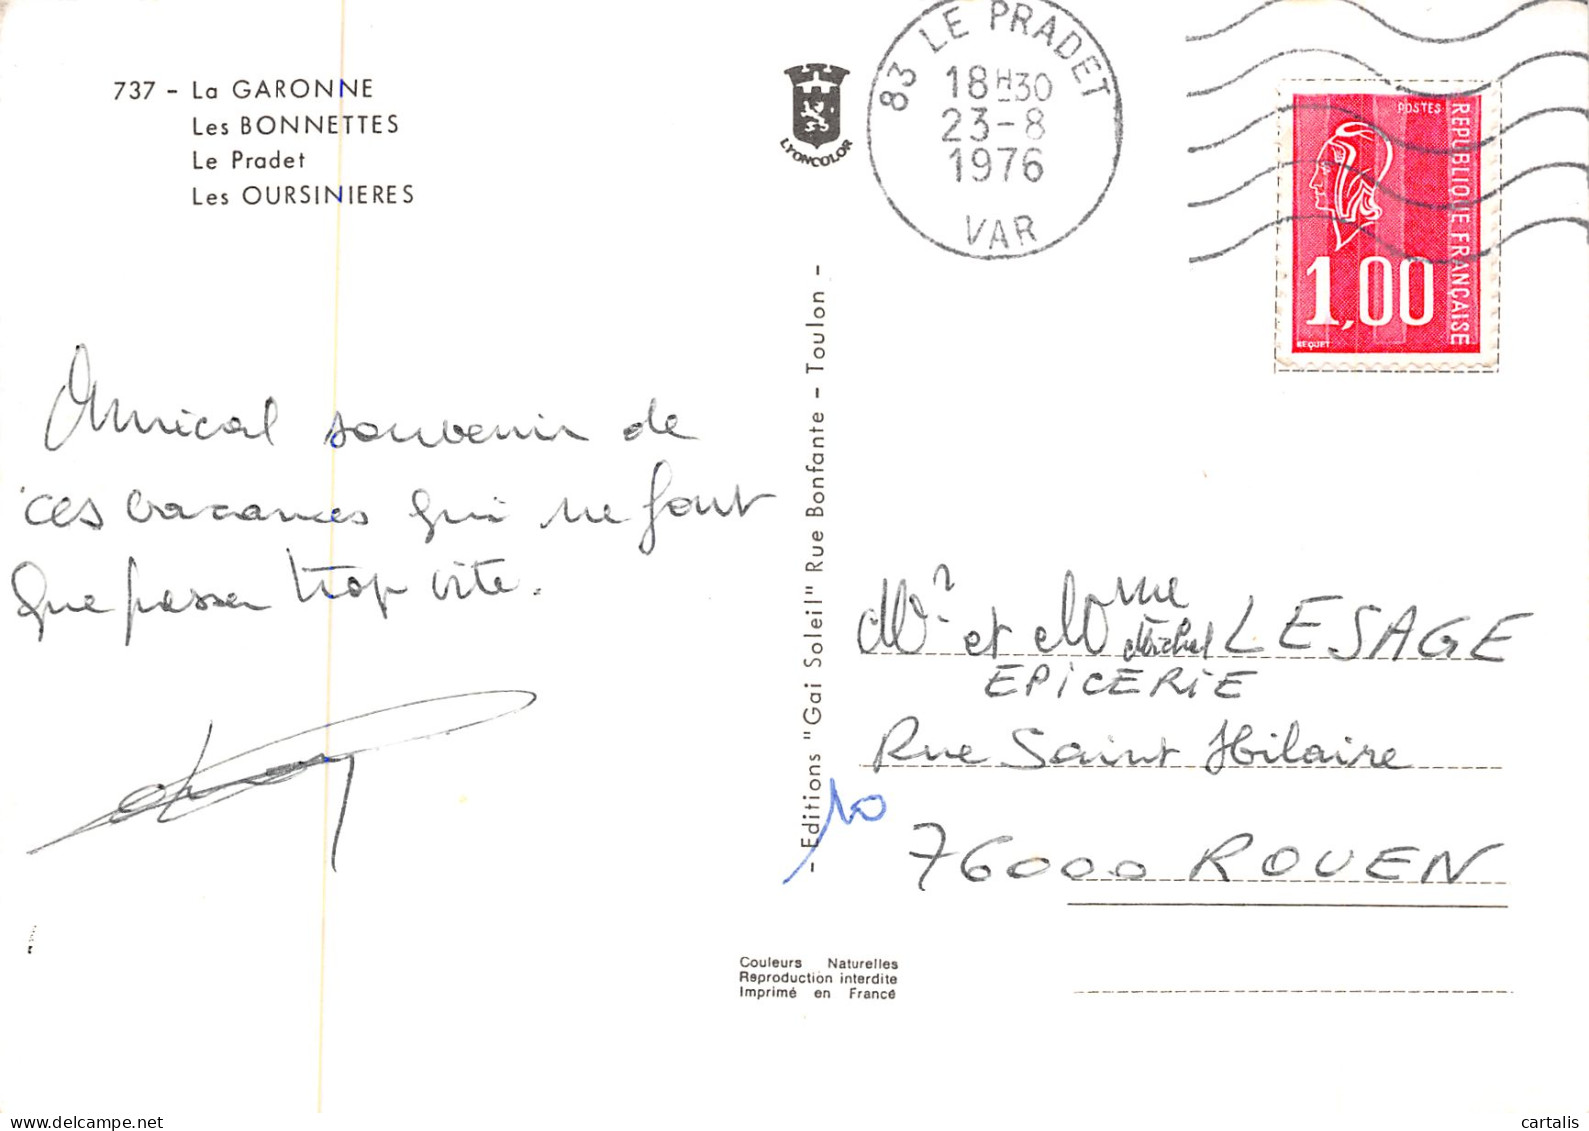 737 - La GARONNE
Les BONNETTES
Le Pradet
Les OURSINIERES
LYONCOLOR
83 LE PRADET
18H30
23-8
1976
VAR
POSTES
REPUBLIQUE FRANÇAISE
1,00
BEQUET
Amical souvenir de
ces vacances qui ne font
que passer trop vite.
- Editions "Gai Soleil" Rue Bonfante - Toulon -
10
Mr et Mme Michel LESAGE
EPICERIE
Rue Saint Hilaire
76000 ROUEN
Couleurs Naturelles
Reproduction interdite
Imprimé en France
cartalis